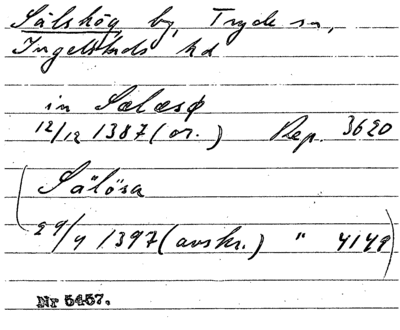 Sålshög by, Tryde sn,
Ingelstads hd
in Salæsø
12/12 1387 (or.) Rep. 3620
(Sälösa
29/9 1397 (avskr.) " 4149)
Nr 5457.